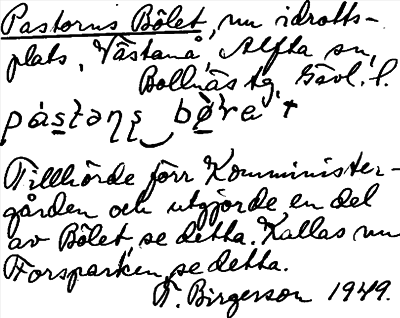 Pastorns Bölet, nu idrotts-
plats, Västanå, Alfta sn,
Bollnäs tg, Gävl. l.
Tillhörde förr Komminister-
gården och utgjorde en del
av Bölet, se detta. Kallas nu
Forsparken, se detta.
T. Birgerson 1949.